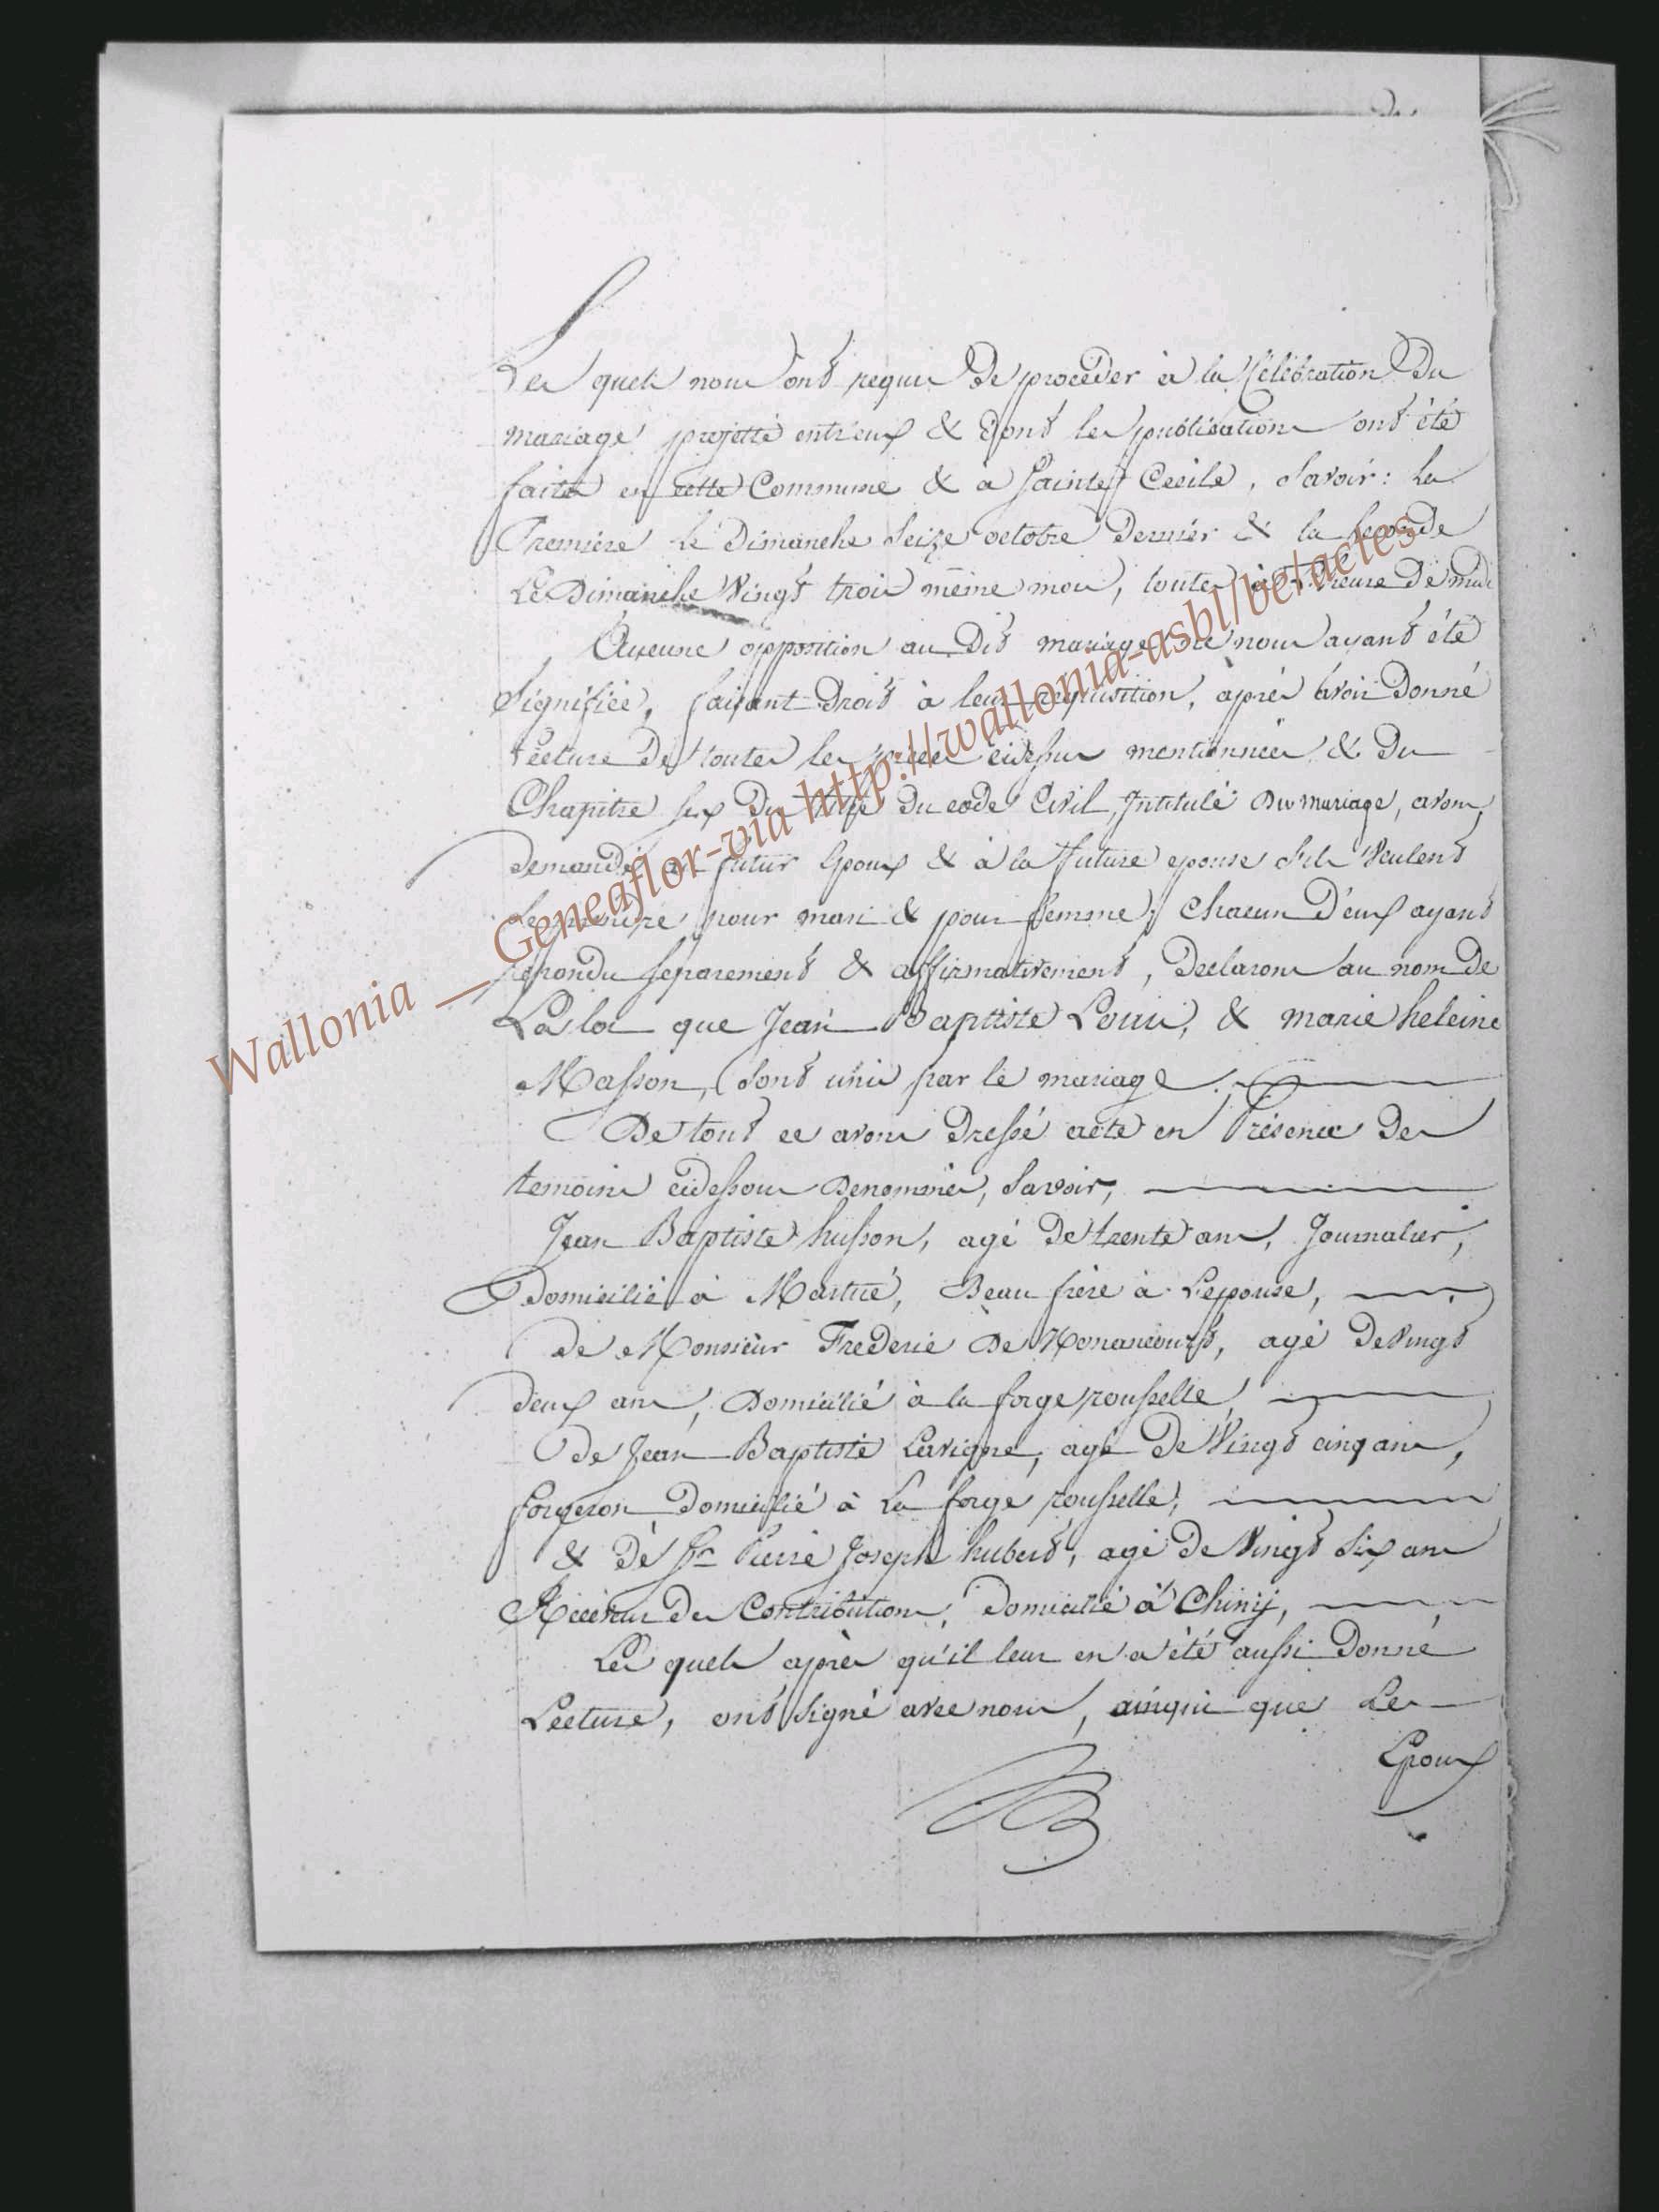 Les quels nous ont requis de procéder à la Célébration du
mariage projetté entr'eux & dont les publications ont été
faites en cette Commune & à Sainte Cecile, Savoir: La
Premiere le Dimanche Seize octobre Dernier & la Seconde
Le Dimanche Vingt trois même mois, toutes à l'heure de midi
Aucune opposition au Dit mariage ne nous ayant été
Signifiée, faisant Droit à leur requisition, après avoir Donné
Lecture De toutes les pieces cidessus mentionnées & Du
Chapitre Six Du titre Du code Civil, Intitulé Du mariage, avons
Demandé au futur Epoux & à la future epouse s'ils Veulent
se prendre pour mari & pour femme; Chacun D'eux ayant
repondu Separement & affirmativement, Declarons au nom De
La loi que Jean Baptiste Louis, & marie heleine
Masson, Sont unis par le mariage.
De tout ce avons Dressé acte en Présence Des
temoins cidessous Denommés, Savoir;
Jean Baptiste husson, agé De trente ans, Journalier,
Domicilié à Martué, Beau frère à L'epouse,
de Monsieur Frederic De , agé De Vingt
deux ans, Domicilié à la forge rousselle,
De Jean Baptiste Lavigne, agé De Vingt cinq ans,
forgeron Domicilié à La forge rousselle,
& De Sr Pierre Joseph hubert, agé De Vingt Six ans
Réceveur Des Contributions, Domicilié à Chiny,
Les quels après qu'il leur en a été aussi Donné
Lecture, ont Signé avec nous, ainqui que Les
Epoux
Wallonia __Geneaflor-via http://wallonia-asbl/be/actes